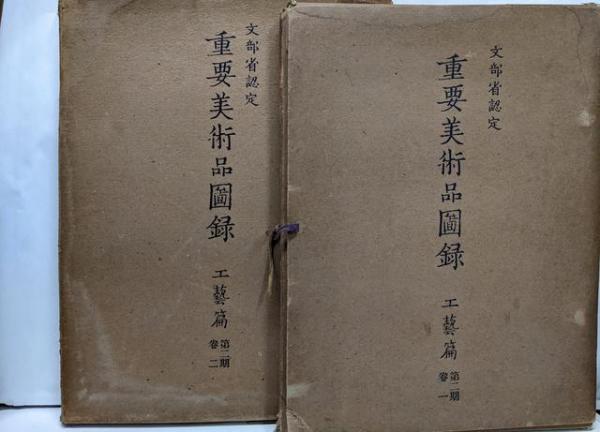 文部省認定
重要美術品圖録 工藝篇
第二期
卷一
文部省認定
重要美術品圖録 工藝篇
第二期
卷二